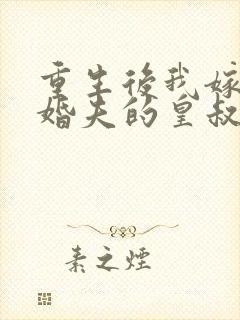 重生後我嫁
婚夫的皇叔
素之煙